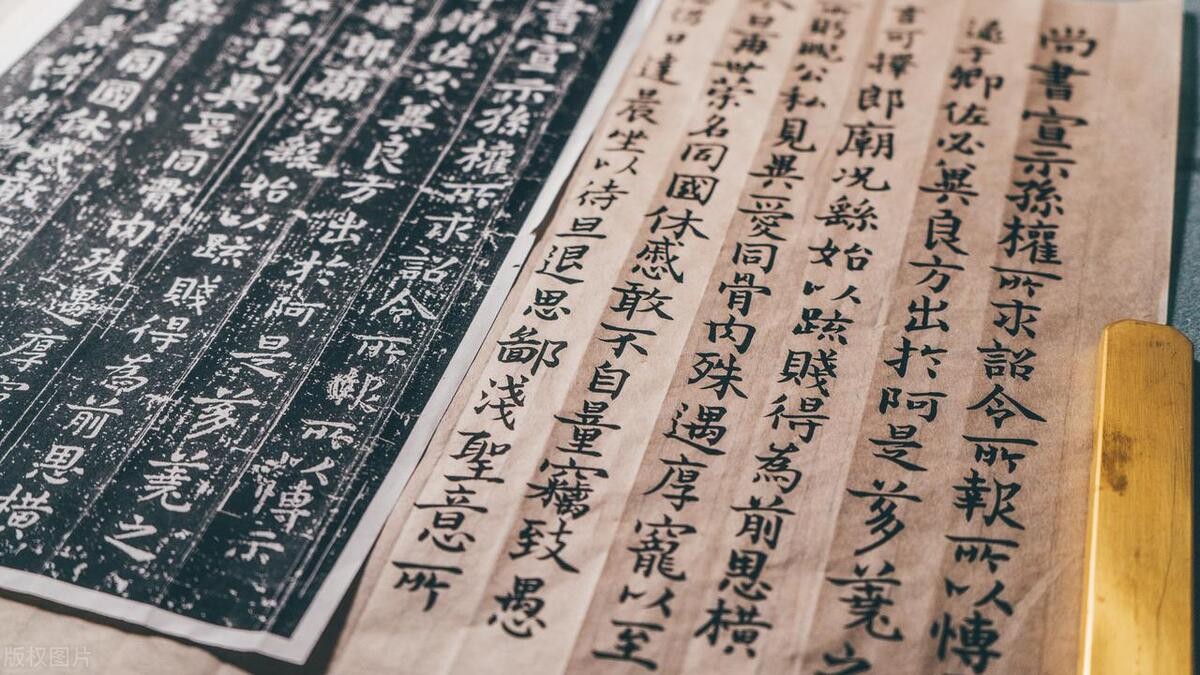 尚書宣示孫權所求詔令所報所以博
逺于卿佐必異良方出於阿是芻蕘之
言可擇郎廟況繇始以疏賤得為前恩橫
公私見異愛同骨肉殊遇厚寵以至
再世榮名同國休慼敢不自量竊致愚
日達晨坐以待旦退思鄙淺聖意所
書宣示孫權所求詔令所報所以博示
卿佐必異良方出於阿是芻蕘之
郎廟況繇始以疏賤得為前恩橫
私見異愛同骨肉殊遇厚寵
名同國休慼敢不
版权图片